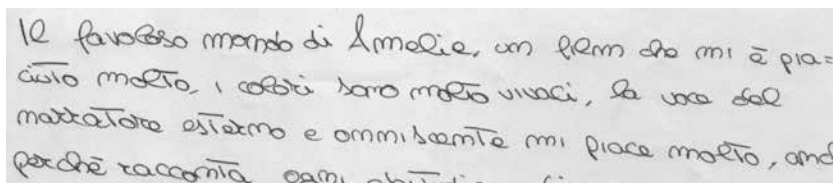 Il favoloso mondo di Amelie, un film che mi è pia=
ciuto molto, i colori sono molto vivaci, la voce del
narratore esterno e omniscente mi piace molto, anch
perché racconta ogni